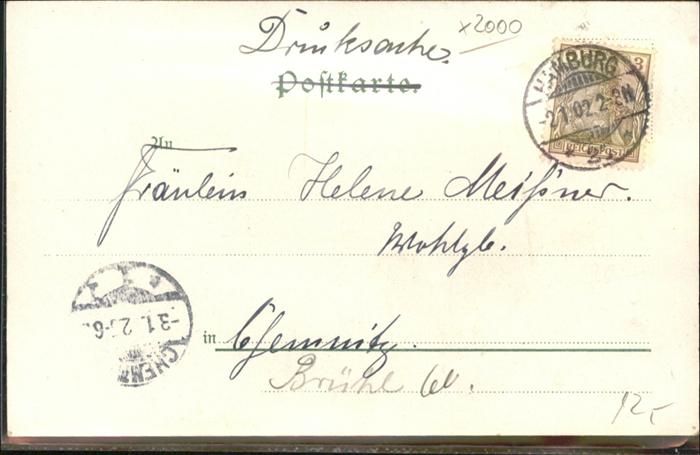 x2000
Drucksache.
Postkarte.
3
REICHSPOST
HAMBURG
2.1.02. 2-3N
An
Fräulein Helene Meißner.
Wohlgb.
-3.1.
CHEMN
in Chemnitz.
Brühl
12,-